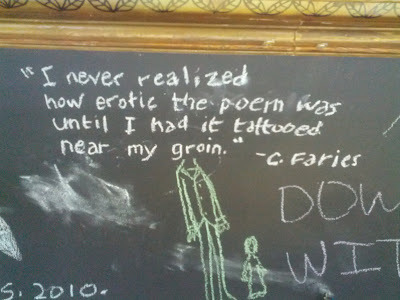 "I never realized
how erotic the poem was
until I had it tattooed
near my groin."
-C. Faries
DOW
WIT
S. 2010.